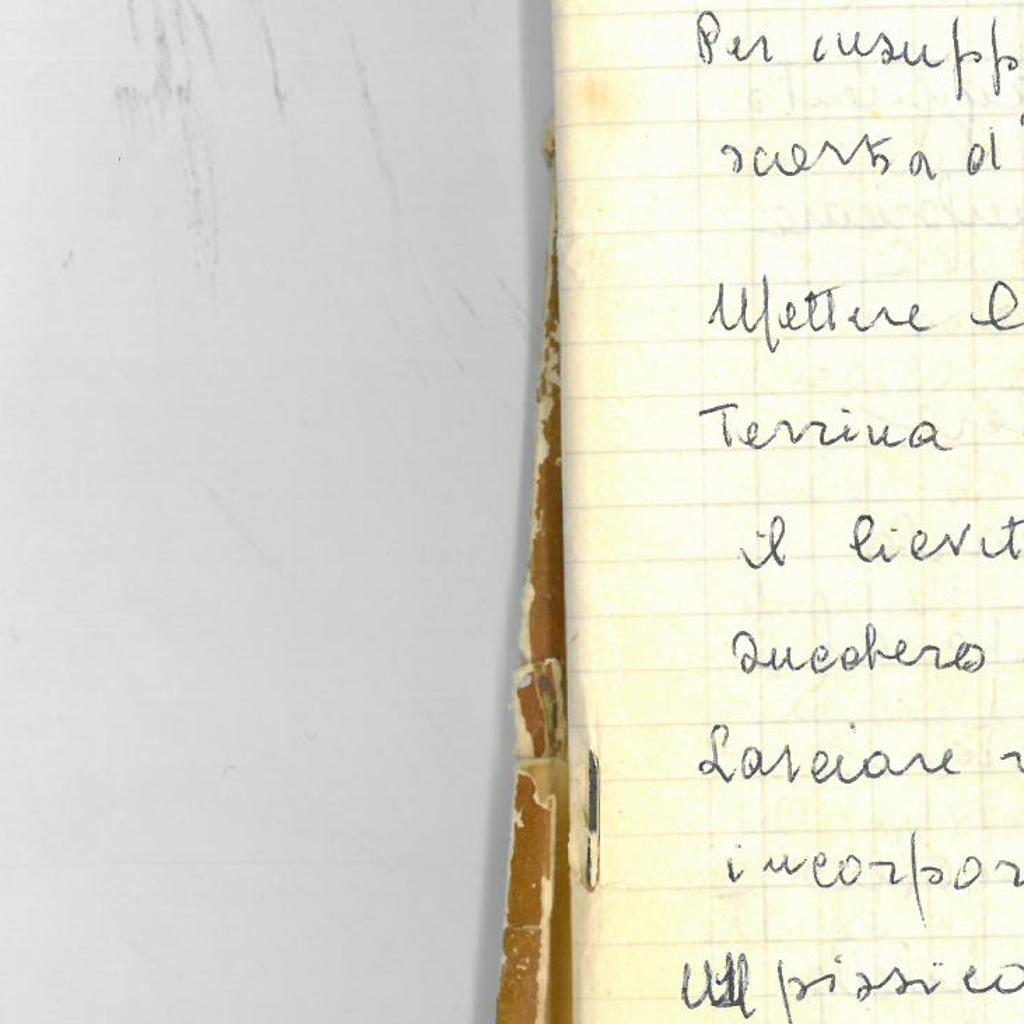 Per insupp
scorza d'
Mettere l
Terrina
il lievit
zucchero
Lasciare r
incorpor
Un pizzico